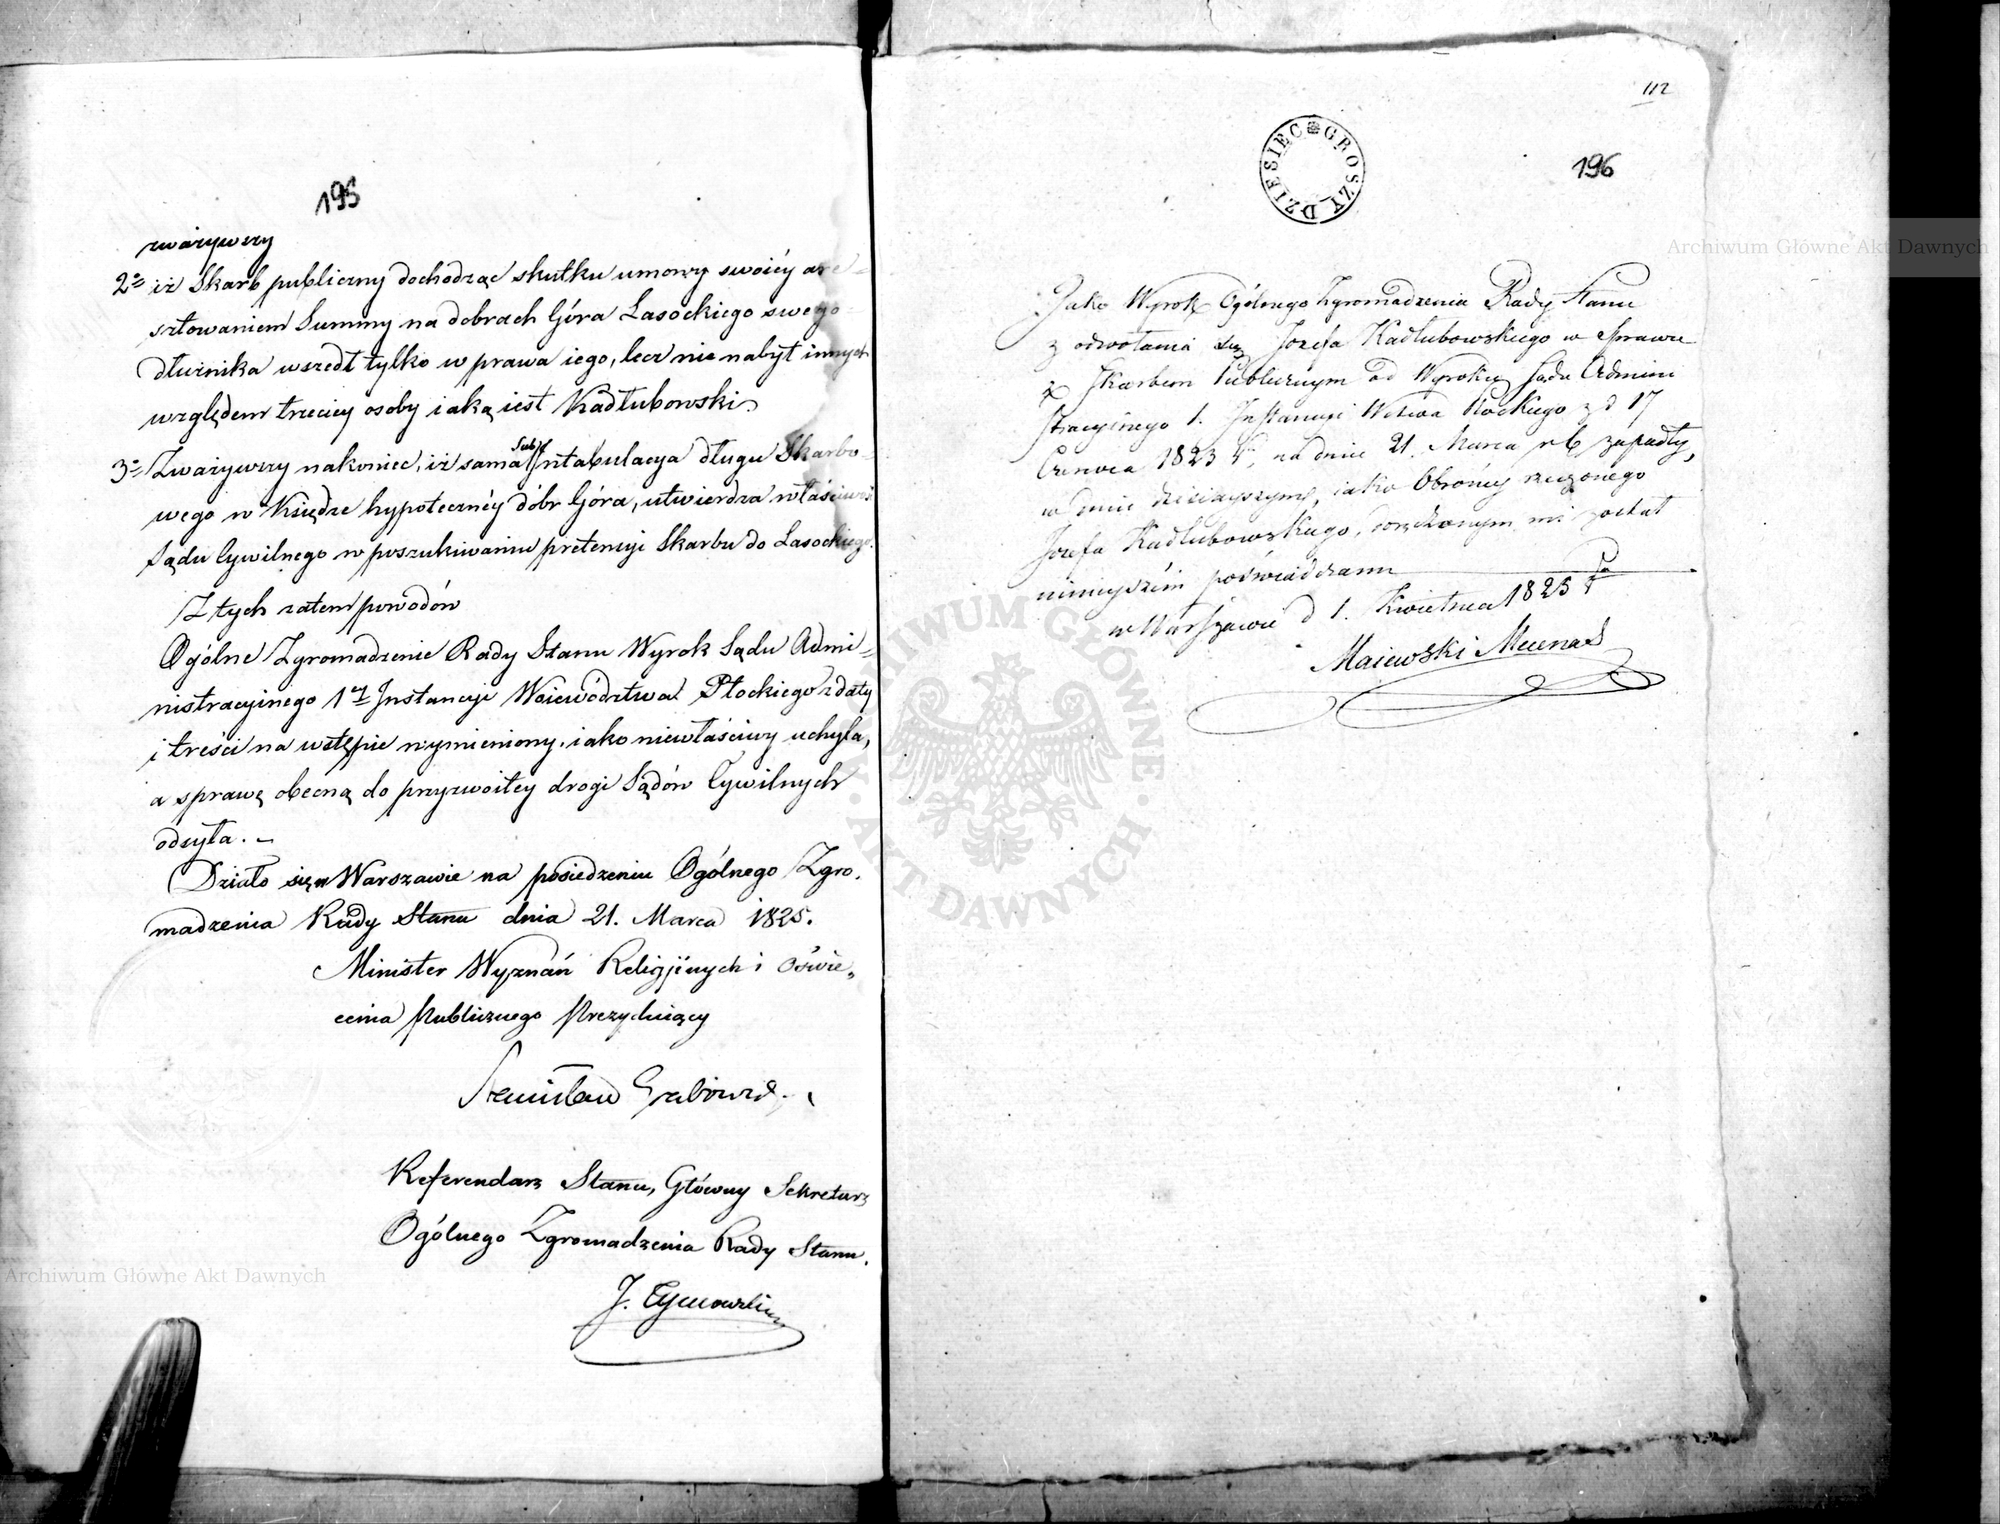 195
zważywszy
2° iż Skarb publiczny dochodząc skutku umowy swoiéy are-
sztowaniem Summy na dobrach Góra Lasockiego swego
dłużnika wszedł tylko w prawa iego, lecz nie nabył innych
względem trzeciey osoby iaką iest Kadłubowski.
3° Zważywszy nakoniec, iż sama Subintabulacya długu Skarbo-
wego w Księdze hypotecznéy dóbr Góra, utwierdza właściwość
Sądu Cywilnego w poszukiwaniu pretensyi Skarbu do Lasockiego.
Z tych zatem powodów
Ogólne Zgromadzenie Rady Stanu Wyrok Sądu Admi-
nistracyinego 1ey Instancyi Województwa Płockiego z daty
i treści na wstępie wymieniony, iako niewłaściwy uchyla,
a sprawę obecną do przyzwoitey drogi Sądów Cywilnych
odsyła. -
Działo się w Warszawie na posiedzeniu Ogólnego Zgro-
madzenia Rady Stanu dnia 21. Marca 1825.
Minister Wyznań Religijnych i Oświe-
cenia Publicznego Prezyduiący
Stanisław Grabowski
Referendarz Stanu, Główny Sekretarz
Ogólnego Zgromadzenia Rady Stanu.
J. Tymowski
112
DZIESIEC GROSZY
196
Jako Wyrok Ogólnego Zgromadzenia Rady Stanu
z odwołania się Józefa Kadłubowskiego w Sprawie
z Skarbem Publicznym od Wyroku Sądu Admini
stracyinego 1. Instancyi Wdztwa Płockiego z d 17
Czerwca 1823 r. na dniu 21. Marca r b zapadły,
w dniu dzisiayszym, iako Obrońcy rzeczonego
Józefa Kadłubowskiego, doręczonym mi został
ninieyszém poświadczam
w Warszawie d 1. Kwietnia 1825 r
Maiewski Mecenas
Archiwum Główne Akt Dawnych
ARCHIWUM GŁÓWNE AKT DAWNYCH
Archiwum Główne Akt Dawnych